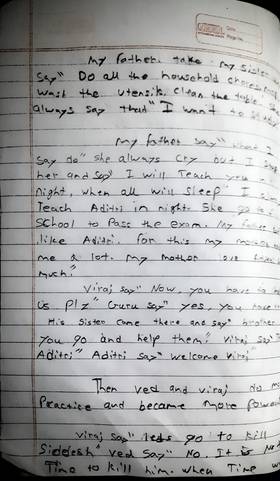 Date
Page No.
My father. take my sister
Say" Do all the household chores
wash the utensils. Clean the table
always say that "I want to study
My father say" what I
Say do" She always Cry but I
her and say" I will Teach you
night, when all will sleep" I
Teach Aditri in night. She go to
School to Pass the exam. My father
like Aditri. for this my
me a lot. my mother love
much."
Viraj say" Now, you have to
us Plz" Guru say" yes, you have
His Sister Come there and say" brother
you go and help them." Viraj say"
Aditri" Aditri say" welcome Viraj"
Then ved and viraj do
Practice and became more Power
viraj say" lets go to kill
Siddesh" ved Say" No. It is
Time to kill him. when Time